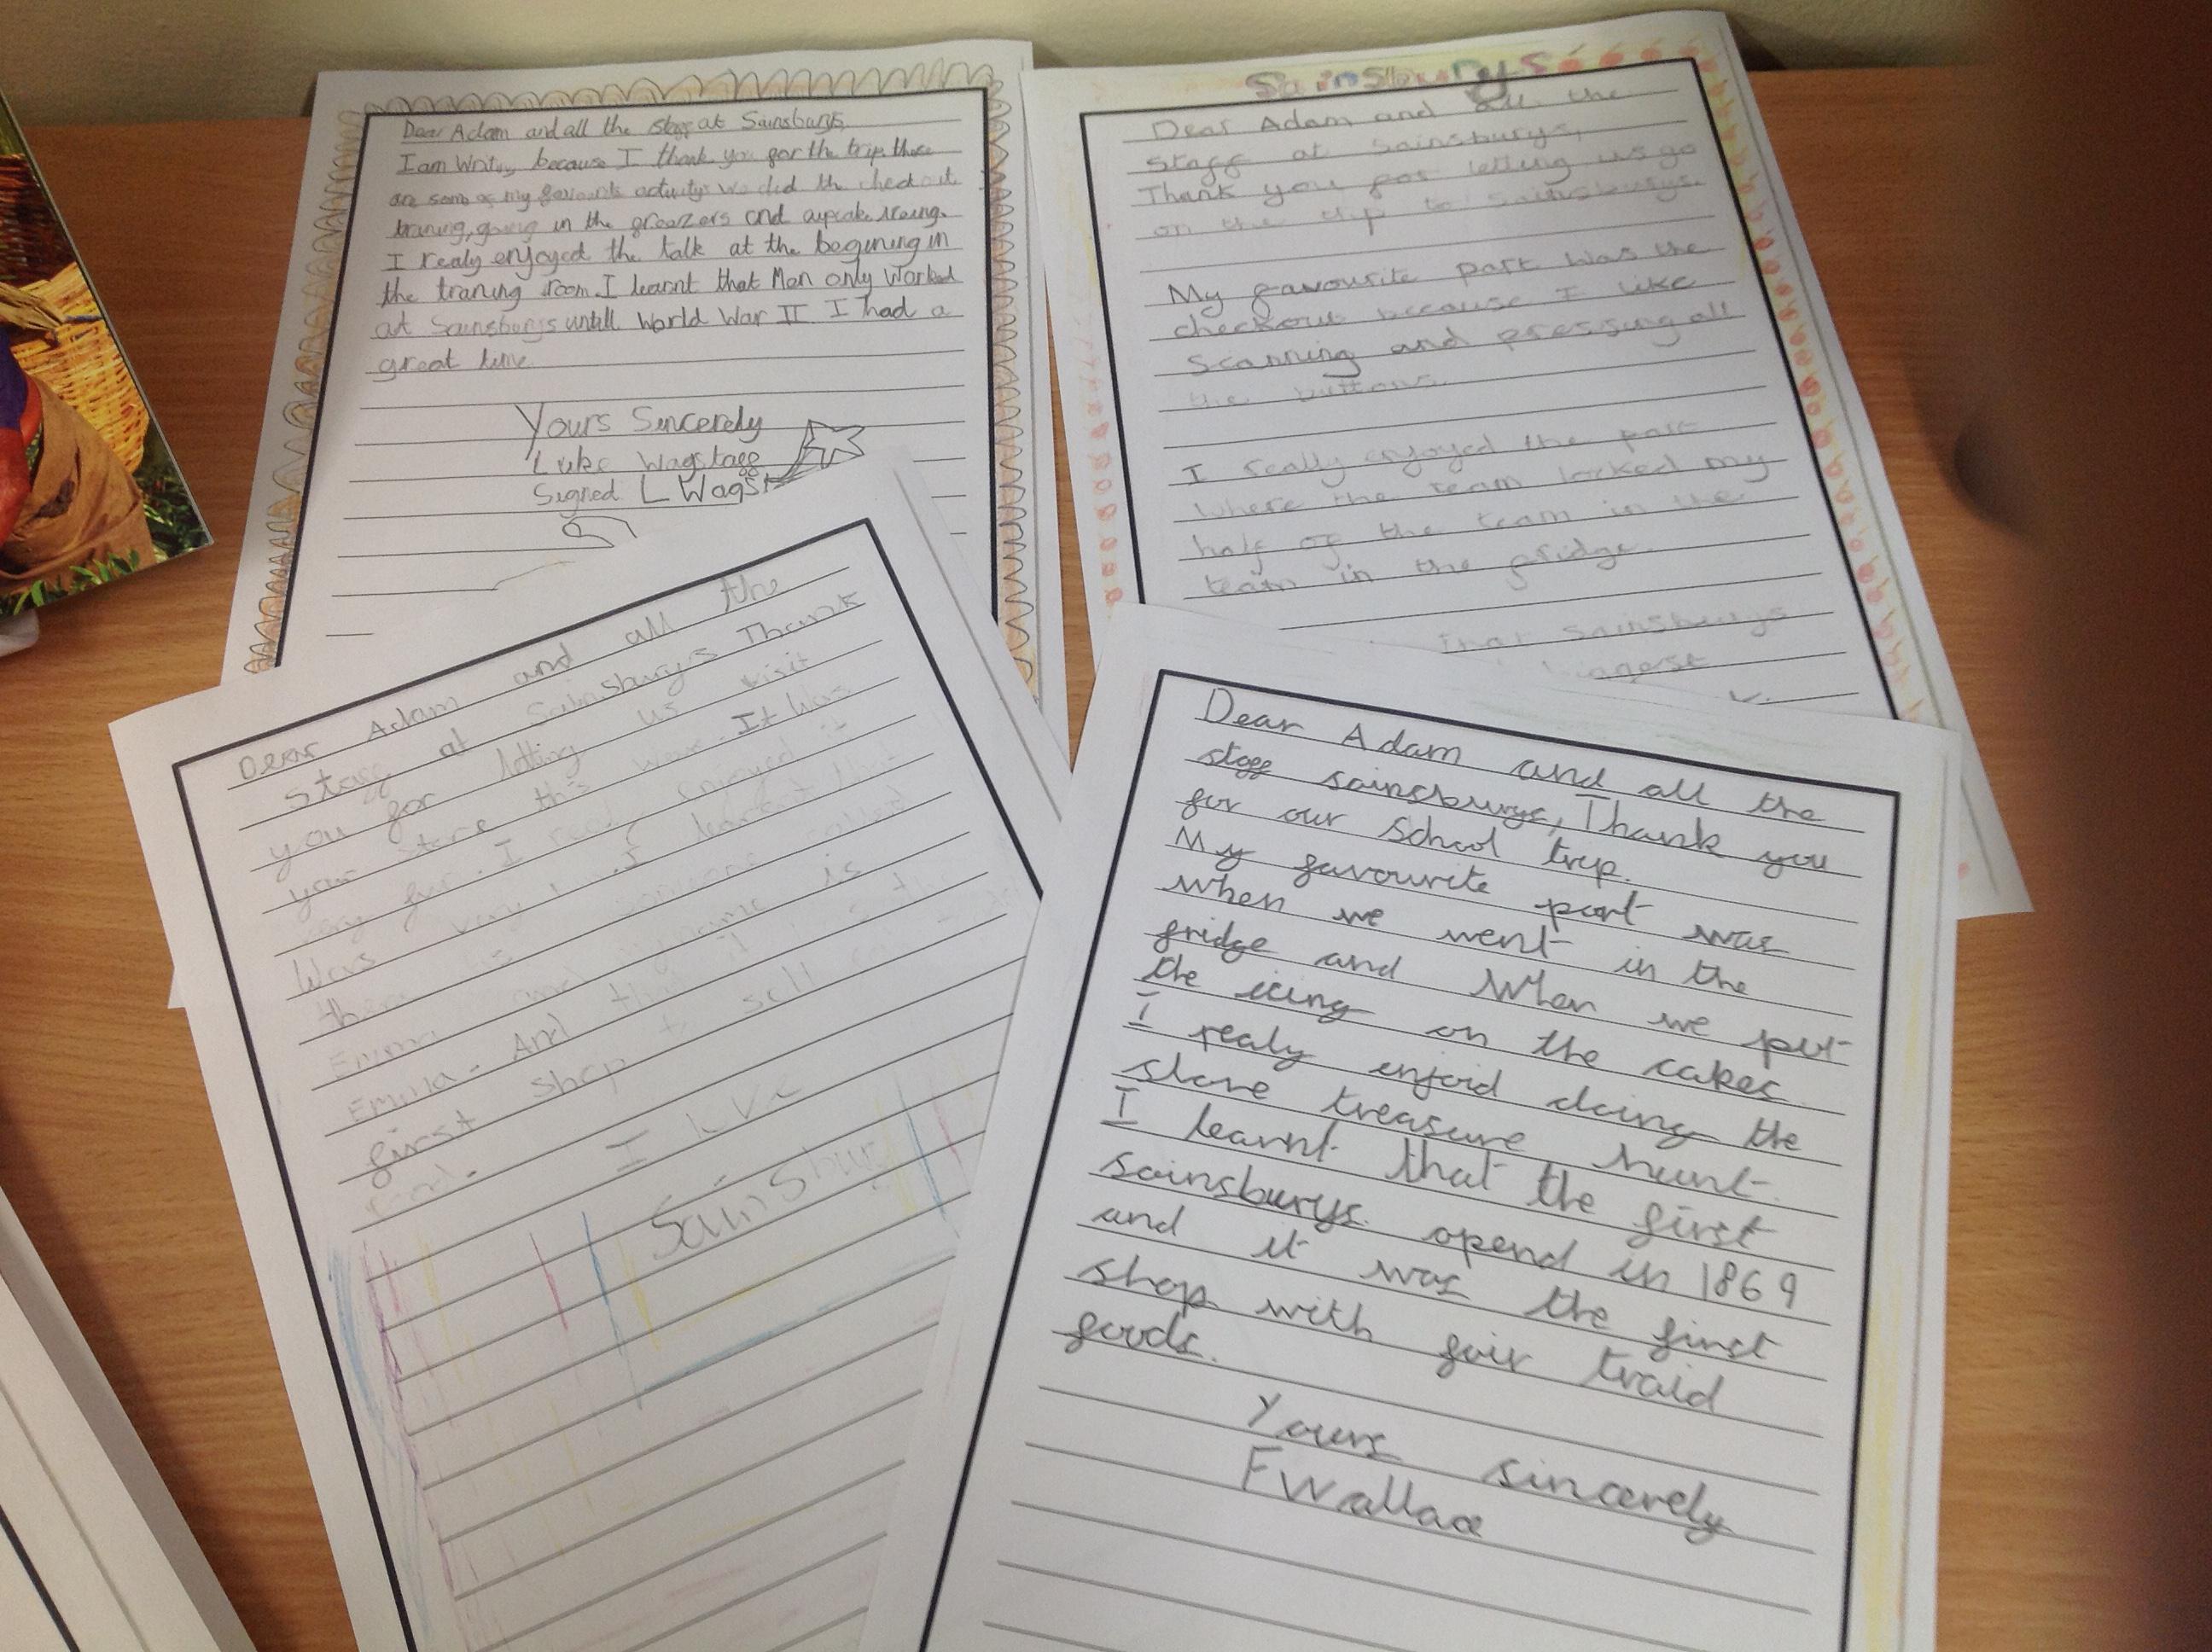 Dear Adam and all the staff at Sainsburys,
I am Writing because I thank you for the trip these
are some of my favourite activitys we did the checkout
traning, going in the freezers and cupcake iceing.
I realy enjoyed the talk at the begining in
the traning room I learnt that Men only worked
at Sainsburys untill World War II I had a
great time
Yours Sincerely
Luke Wagstaff
Signed L Wagst
Sainsburys
Dear Adam and all the
staff at Sainsburys,
Thank you for letting us go
on the trip to Sainsburys.
My favourite part was the
checkout because I like
scanning and pressing all
the buttons.
I really enjoyed the part
where the team locked my
half of the team in the
team in the fridge.
that Sainsburys
Dear Adam and all the
staff at Sainsburys Thank
you for letting us visit
your store this It Was
fun. I enjoyed it
Was very I learnt that
there is someone called
Emma and is
Emma. And the
first shop to sell
I
Sainsbury
Dear Adam and all the
staff sainsburys, Thank you
for our School trip.
My favourite part was
when we went in the
fridge and when we put
the icing on the cakes.
I realy enjoid doing the
store treasure hunt.
I learnt that the first
sainsburys opend in 1869
and it was the first
shop with fair traid
goods.
Yours sincerely
F Wallace